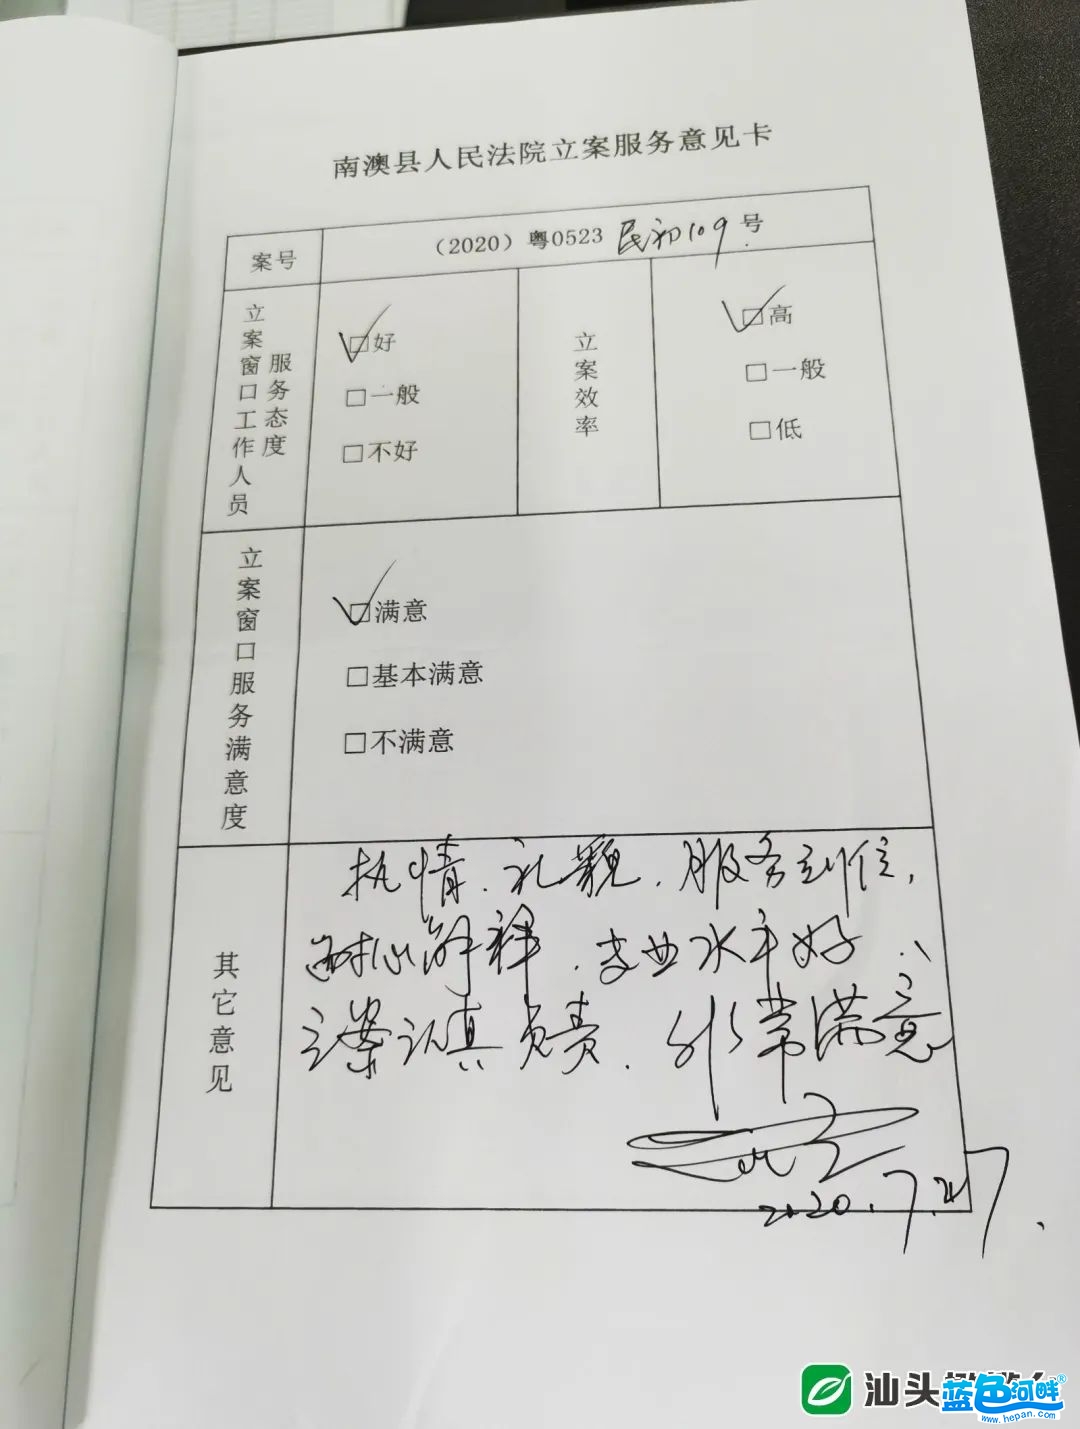 南澳县人民法院立案服务意见卡
案号
（2020）粤0523 民初109 号
立案窗口工作人员
服务态度
☑好
□一般
□不好
立案效率
☑高
□一般
□低
立案窗口服务满意度
☑满意
□基本满意
□不满意
其它意见
热情、礼貌、服务到位，
耐心解释、专业水平好、
立案认真负责、非常满意
2020.7.27.
汕头
蓝色河畔®
www.hepan.com